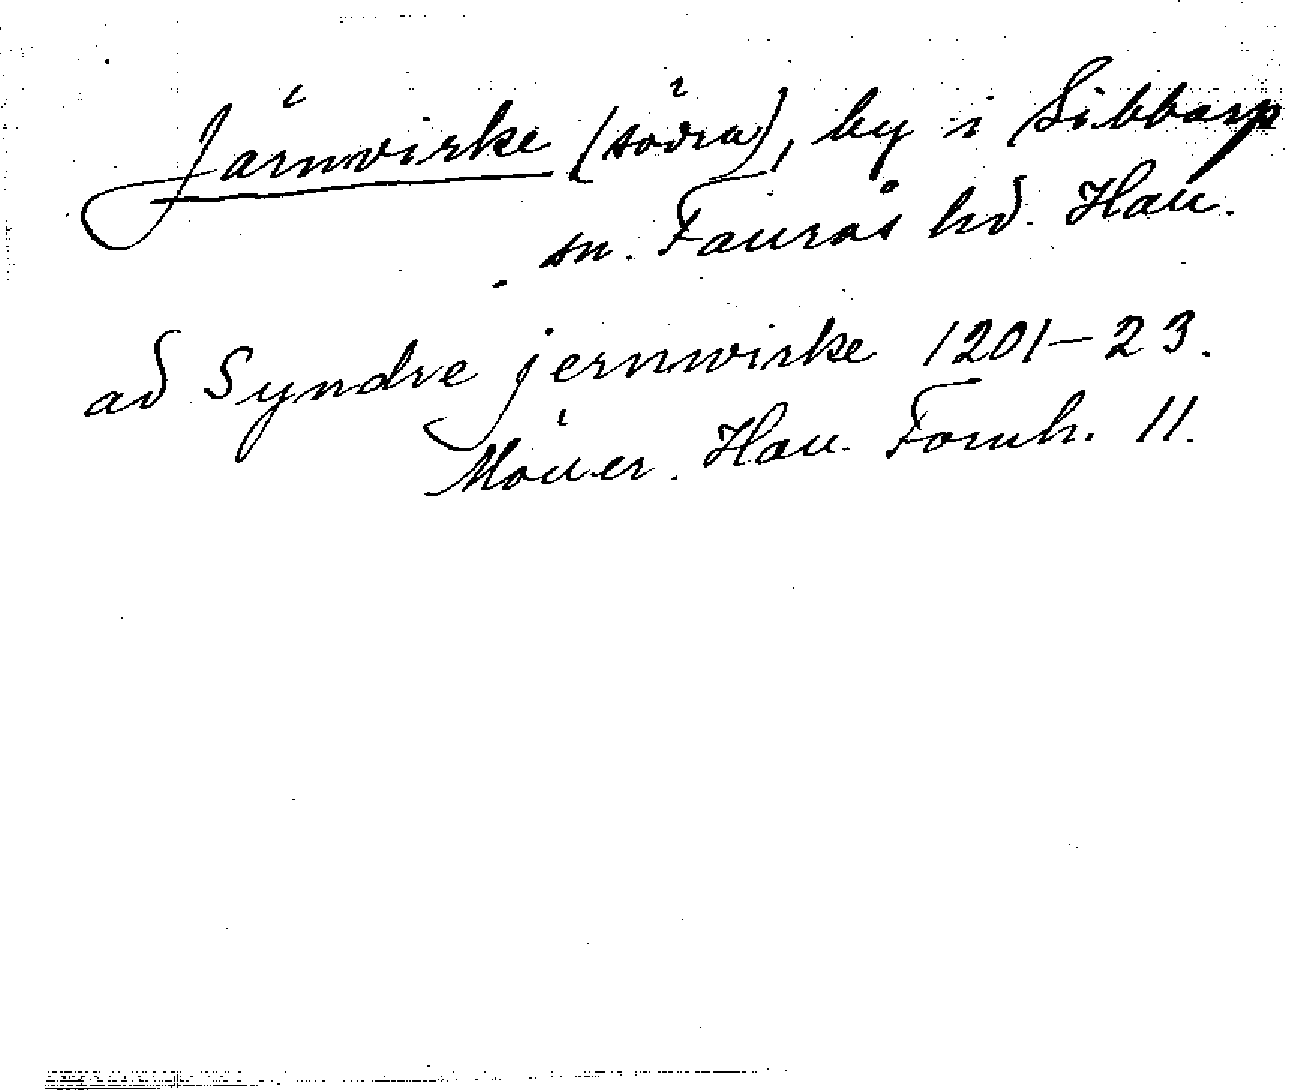 Järnvirke (södra), by i Sibbarp
sn. Faurås hd. Hall.
ad Syndre jernwirke 1201–23.
Möller. Hall. Fornh. II.